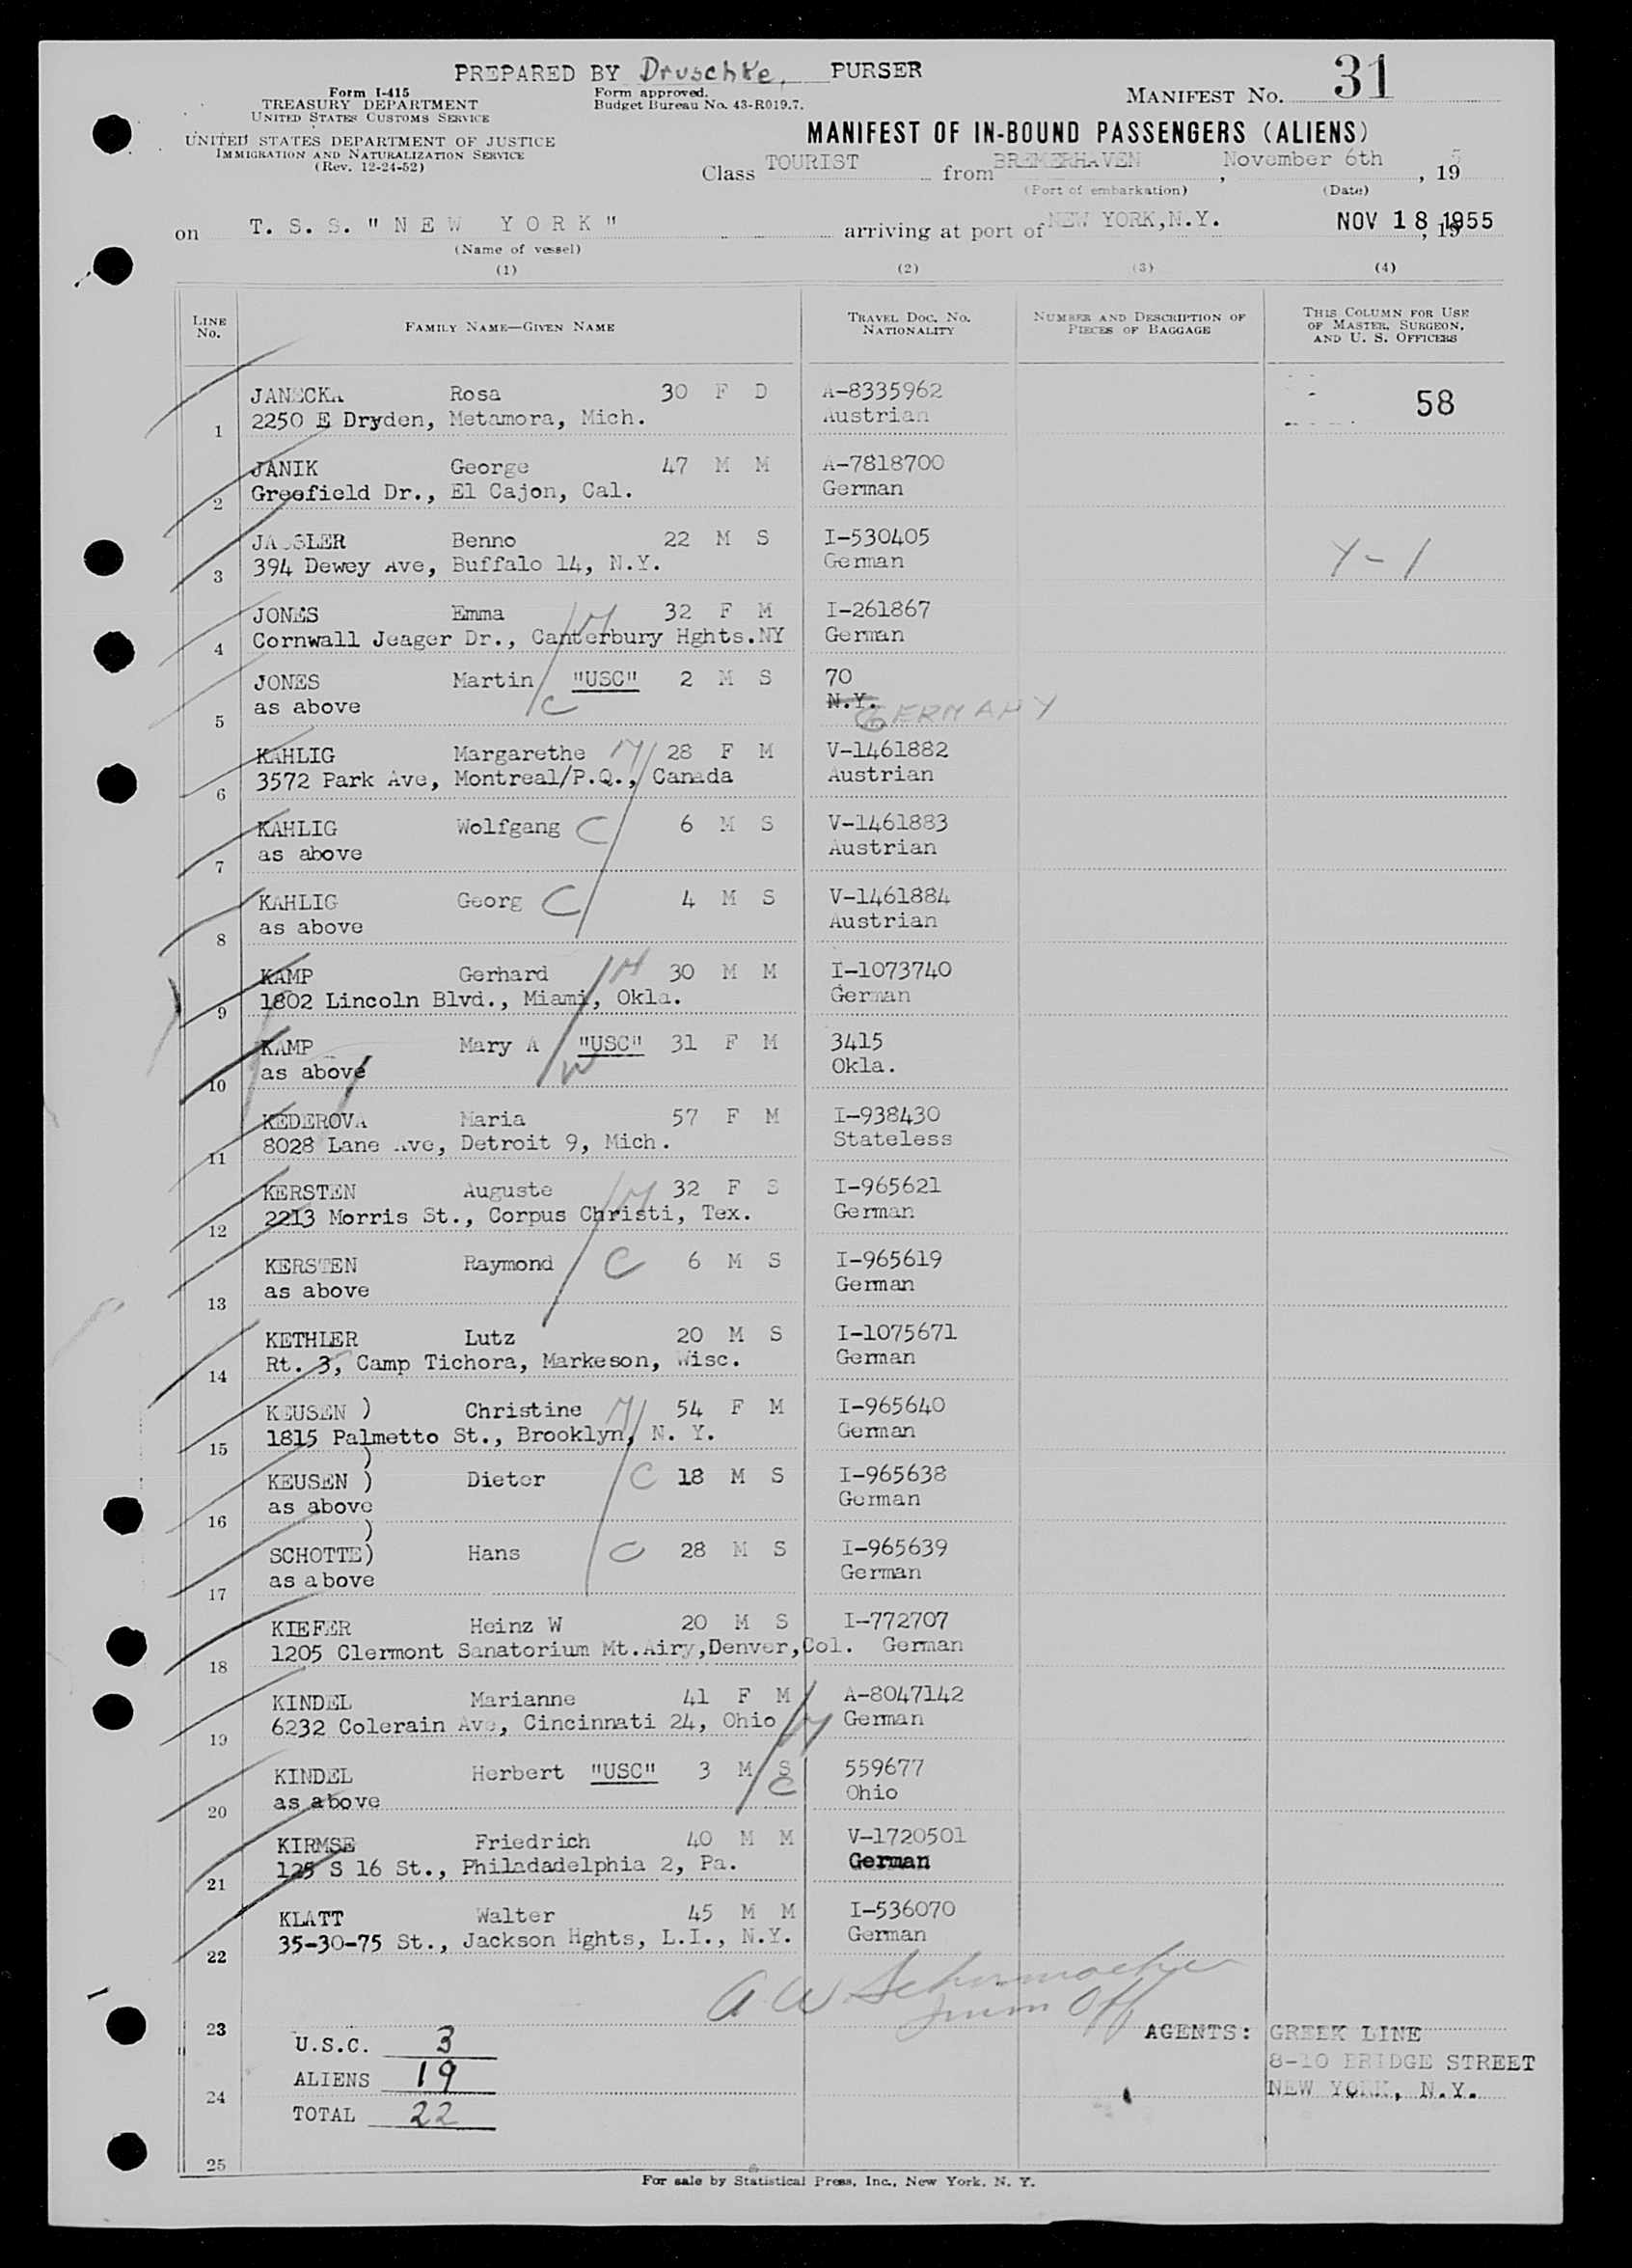 PREPARED BY Druschke, PURSER
Form I-415
TREASURY DEPARTMENT
UNITED STATES CUSTOMS SERVICE
UNITED STATES DEPARTMENT OF JUSTICE
IMMIGRATION AND NATURALIZATION SERVICE
(Rev. 12-24-52)
Form approved.
Budget Bureau No. 43-R019.7.
MANIFEST NO. 31
MANIFEST OF IN-BOUND PASSENGERS (ALIENS)
Class TOURIST from BREMERHAVEN, November 6th, 19 5
(Port of embarkation) (Date)
on T. S. S. "NEW YORK" arriving at port of NEW YORK, N.Y. NOV 18 1955, 19
(Name of vessel)
(1) (2) (3) (4)
LINE NO. FAMILY NAME—GIVEN NAME TRAVEL DOC. NO. NATIONALITY NUMBER AND DESCRIPTION OF PIECES OF BAGGAGE THIS COLUMN FOR USE OF MASTER, SURGEON, AND U. S. OFFICERS
JANECKA Rosa 30 F D A-8335962 58
1 2250 E Dryden, Metamora, Mich. Austrian
JANIK George 47 M M A-7818700
2 Greefield Dr., El Cajon, Cal. German
JASSLER Benno 22 M S I-530405
3 394 Dewey Ave, Buffalo 14, N.Y. German Y-1
JONES Emma M 32 F M I-261867
4 Cornwall Jeager Dr., Canterbury Hghts.NY German
JONES Martin "USC" 2 M S 70
5 as above C N.Y. GERMANY
KAHLIG Margarethe M 28 F M V-1461882
6 3572 Park Ave, Montreal/P.Q., Canada Austrian
KAHLIG Wolfgang C 6 M S V-1461883
7 as above Austrian
KAHLIG Georg C 4 M S V-1461884
8 as above Austrian
KAMP Gerhard H 30 M M I-1073740
9 1802 Lincoln Blvd., Miami, Okla. German
KAMP Mary A "USC" 31 F M 3415
10 as above W Okla.
KEDEROVA Maria 57 F M I-938430
11 8028 Lane Ave, Detroit 9, Mich. Stateless
KERSTEN Auguste M 32 F S I-965621
12 2213 Morris St., Corpus Christi, Tex. German
KERSTEN Raymond C 6 M S I-965619
13 as above German
KETHLER Lutz 20 M S I-1075671
14 Rt. 3, Camp Tichora, Markeson, Wisc. German
KEUSEN ) Christine M 54 F M I-965640
15 1815 Palmetto St., Brooklyn, N. Y. German
)
KEUSEN ) Dieter C 18 M S I-965638
16 as above German
)
SCHOTTE) Hans C 28 M S I-965639
17 as above German
KIEFER Heinz W 20 M S I-772707
18 1205 Clermont Sanatorium Mt.Airy,Denver,Col. German
KINDEL Marianne 41 F M A-8047142
19 6232 Colerain Ave, Cincinnati 24, Ohio M German
KINDEL Herbert "USC" 3 M S 559677
20 as above C Ohio
KIRMSE Friedrich 40 M M V-1720501
21 125 S 16 St., Philadadelphia 2, Pa. German
KLATT Walter 45 M M I-536070
22 35-30-75 St., Jackson Hghts, L.I., N.Y. German
A W Schumacher
Imm Off
23
U.S.C. 3
AGENTS: GREEK LINE
8-10 BRIDGE STREET
NEW YORK, N.Y.
ALIENS 19
24
TOTAL 22
25
For sale by Statistical Press, Inc., New York, N. Y.